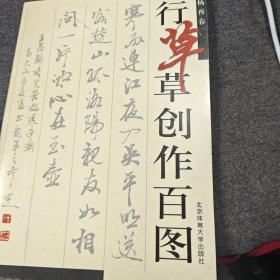 杨再春
行草创作百图
北京体育大学出版社
寒雨连江夜入吴平明送
客楚山孤洛阳亲友如相
问一片冰心在玉壶